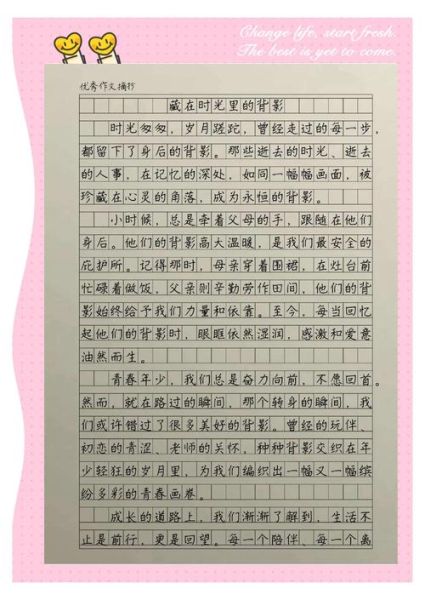 Change life, start fresh.
The best is yet to come.
优秀作文摘抄
藏在时光里的背影
时光匆匆，岁月蹉跎，曾经走过的每一步，
都留下了身后的背影。那些逝去的时光、逝去
的人事，在记忆的深处，如同一幅幅画面，被
珍藏在心灵的角落，成为永恒的背影。
小时候，总是牵着父母的手，跟随在他们
身后。他们的背影高大温暖，是我们最安全的
庇护所。记得那时，母亲穿着围裙，在灶台前
忙碌着做饭，父亲则辛勤劳作田间，他们的背
影始终给予我们力量和依靠。至今，每当回忆
起他们的背影时，眼眶依然湿润，感激和爱意
油然而生。
青春年少，我们总是奋力向前，不愿回首。
然而，就在路过的瞬间，那个转身的瞬间，我
们或许错过了很多美好的背影。曾经的玩伴、
初恋的青涩、老师的关怀，种种背影交织在年
少轻狂的岁月里，为我们编织出一幅又一幅缤
纷多彩的青春画卷。
成长的道路上，我们渐渐了解到，生活不
止是前行，更是回望。每一个陪伴、每一个离